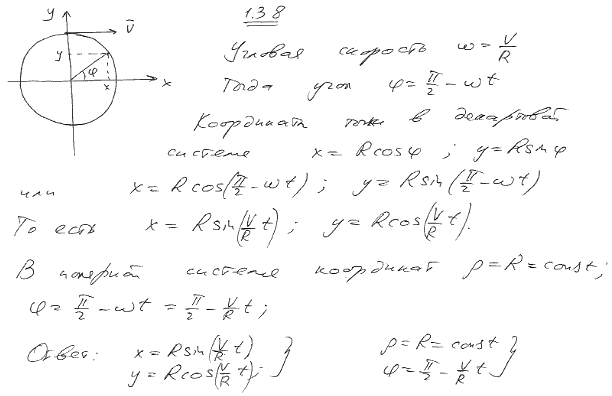 1.3.8
y
V
y
φ
x
x
Угловая скорость ω = V/R
Тогда угол φ = π/2 - ωt
Координаты точки в декартовой
системе x = R cosφ ; y = R sinφ
или x = R cos(π/2 - ωt) ; y = R sin(π/2 - ωt)
То есть x = R sin(V/R t) ; y = R cos(V/R t).
В полярной системе координат ρ = R = const ;
φ = π/2 - ωt = π/2 - V/R t ;
Ответ: x = R sin(V/R t) } ρ = R = const }
y = R cos(V/R t) ; φ = π/2 - V/R t